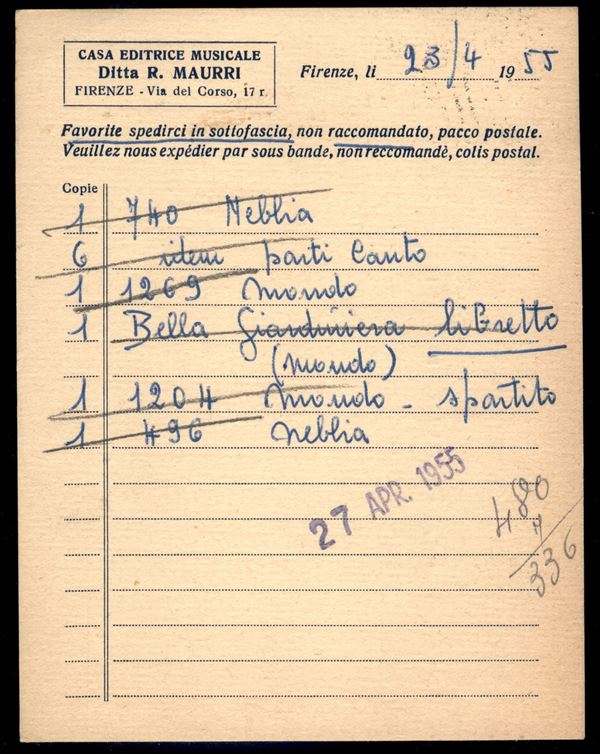 CASA EDITRICE MUSICALE
Ditta R. MAURRI
FIRENZE - Via del Corso, 17 r.
Firenze, li 23/4 1955
Favorite spedirci in sottofascia, non raccomandato, pacco postale.
Veuillez nous expédier par sous bande, non reccomandè, colis postal.
Copie
1 740 Neblia
6 idem parti Canto
1 1269 Mondo
1 Bella Giardiniera libretto
(Mondo)
1 1204 Mondo - spartito
1 496 Neblia
27 APR. 1955
480
336